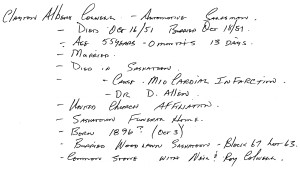 Clayton Albert Colwell - Automotive Salesman
- Died Oct 16/51 Buried Oct 18/51.
- Age 55 years - 0 months 13 days.
- Married.
- Died in Saskatoon.
- Cause - Mio Cardial Infarction.
- Dr D. Allen.
- United Church Affiliation.
- Saskatoon Funeral Home.
- Born 1896? (Oct 3)
- Buried Woodlawn Saskatoon - Block 67 Lot 63.
- Common Stone with Neil & Roy Colwell.